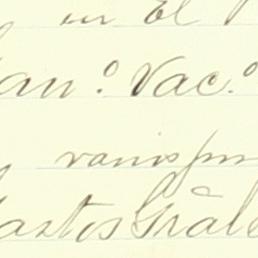 en El
an.º Vac.º
varios pu
astos Grãle